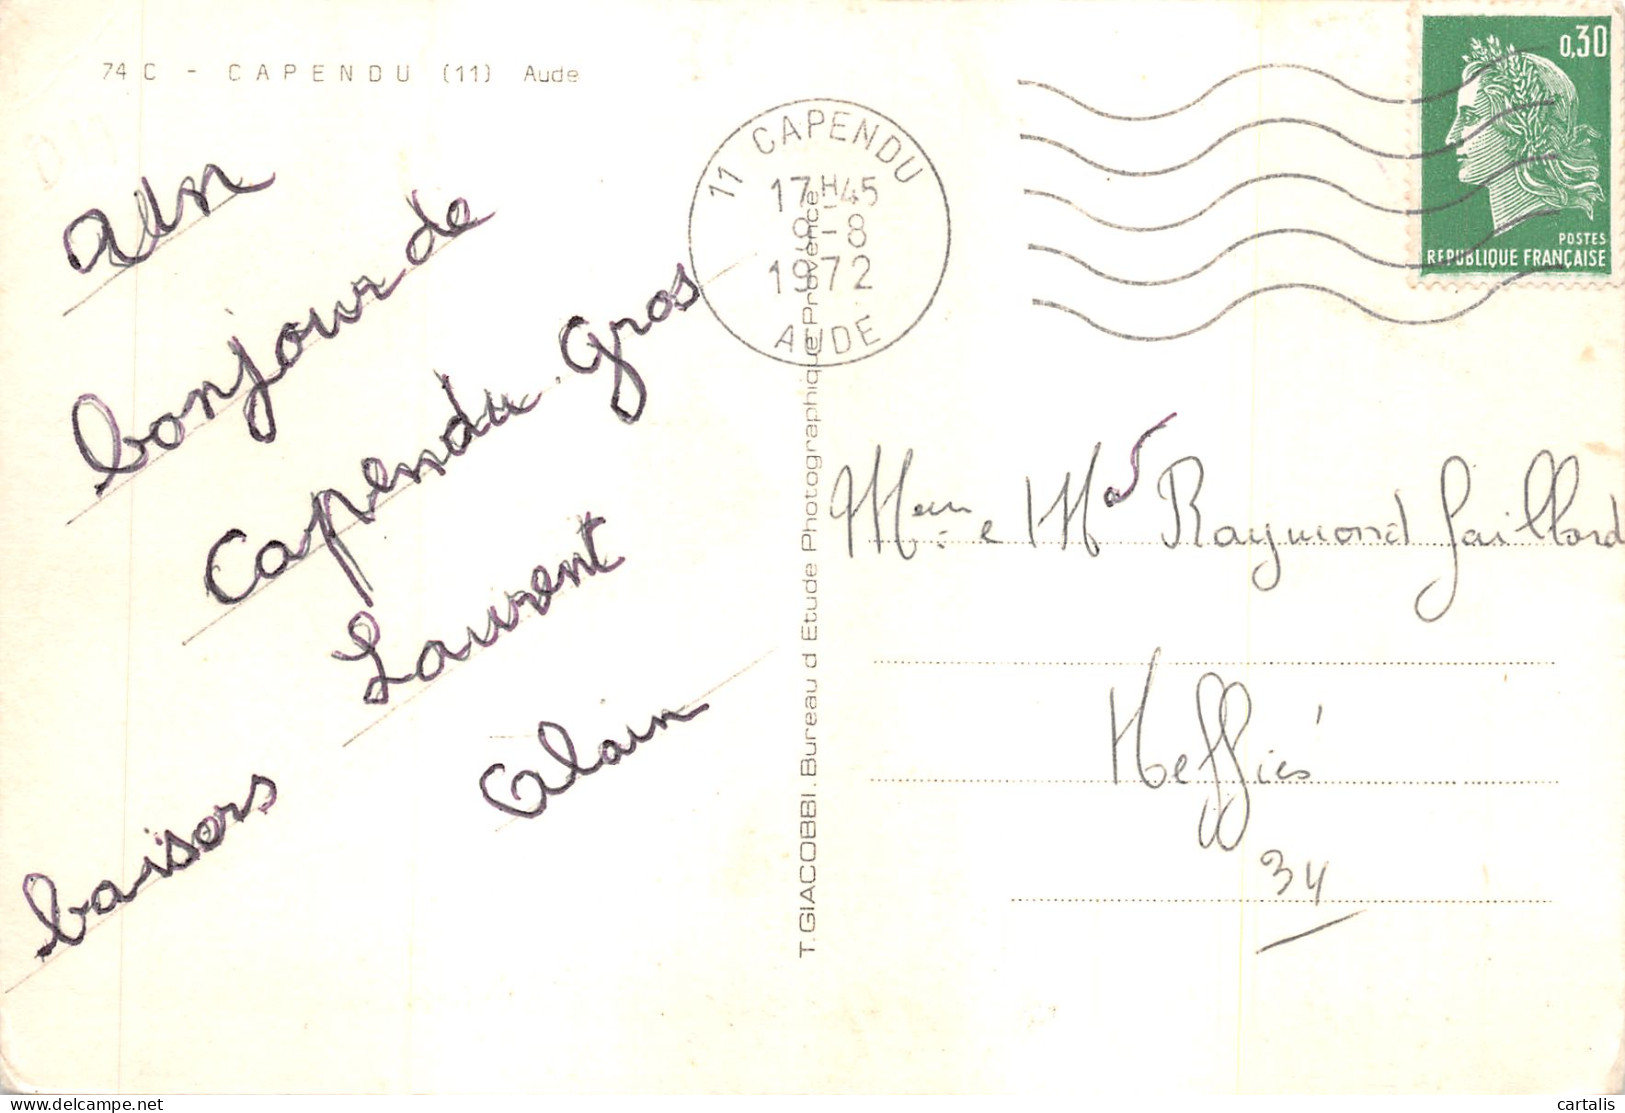 74 C - CAPENDU (11) Aude
11 CAPENDU
17H45
9-8
1972
AUDE
0,30
POSTES
REPUBLIQUE FRANÇAISE
bonjour de
Capendu. Gros
baisers Laurent
Alain
T. GIACOBBI. Bureau d Etude Photographique Provence
Raymond Gaillard
Neffiés
34
cartalis